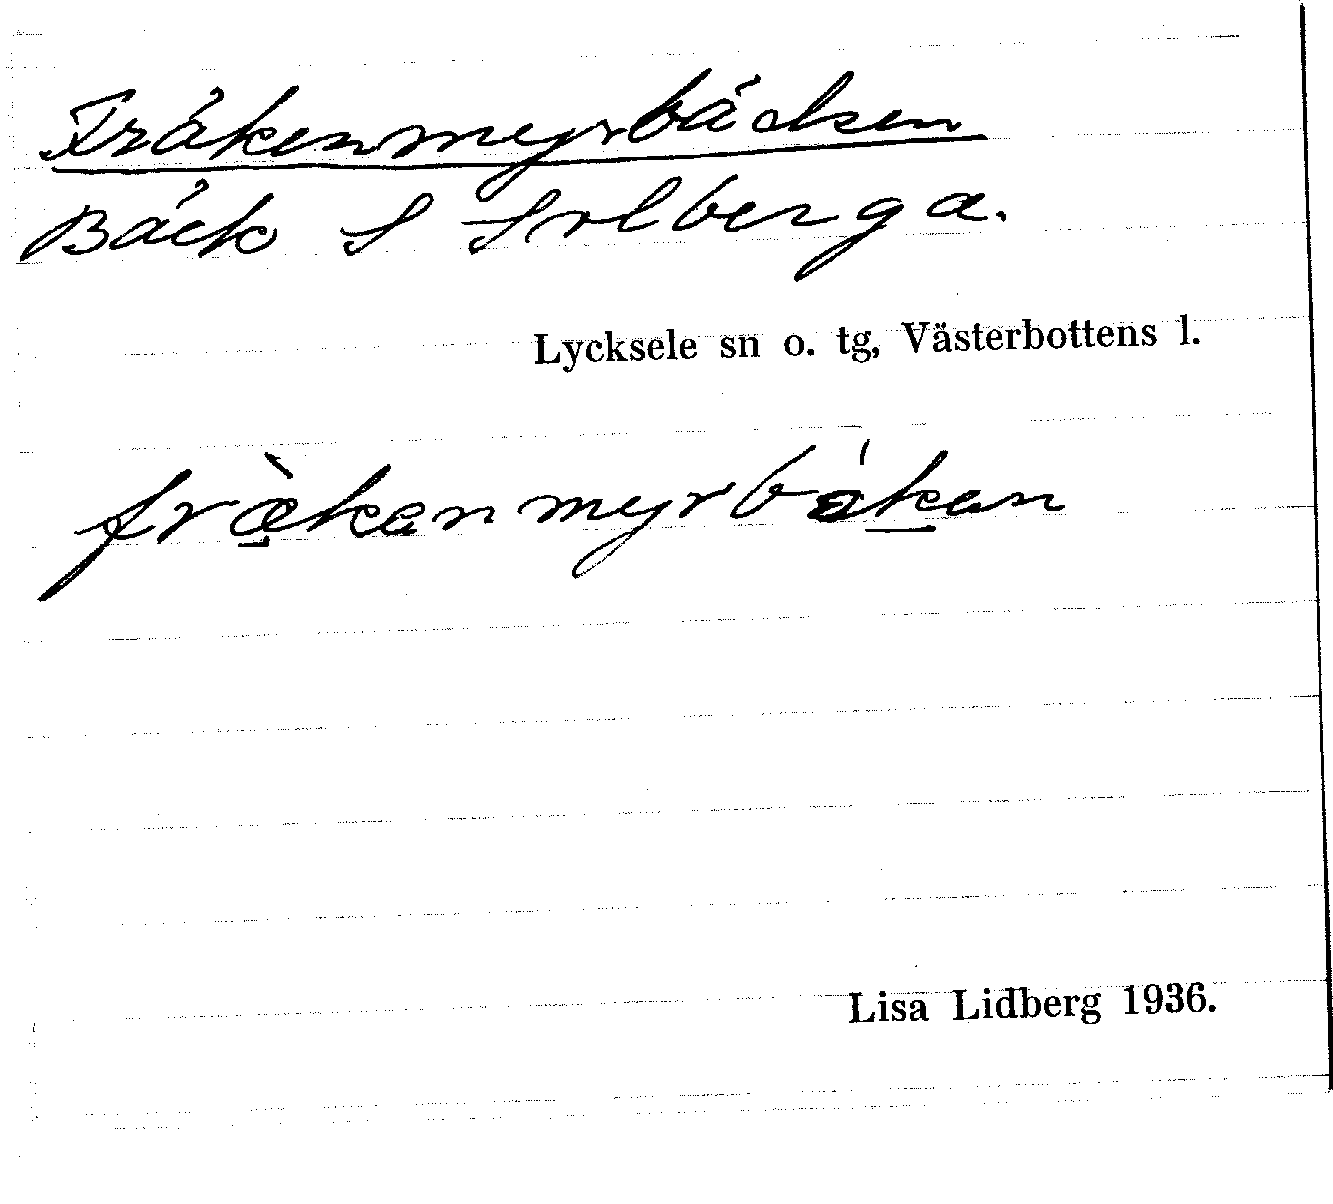 Fräkenmyrbäcken
Bäck S Solberga.
Lycksele sn o. tg, Västerbottens l.
frækenmyrbækən
Lisa Lidberg 1936.